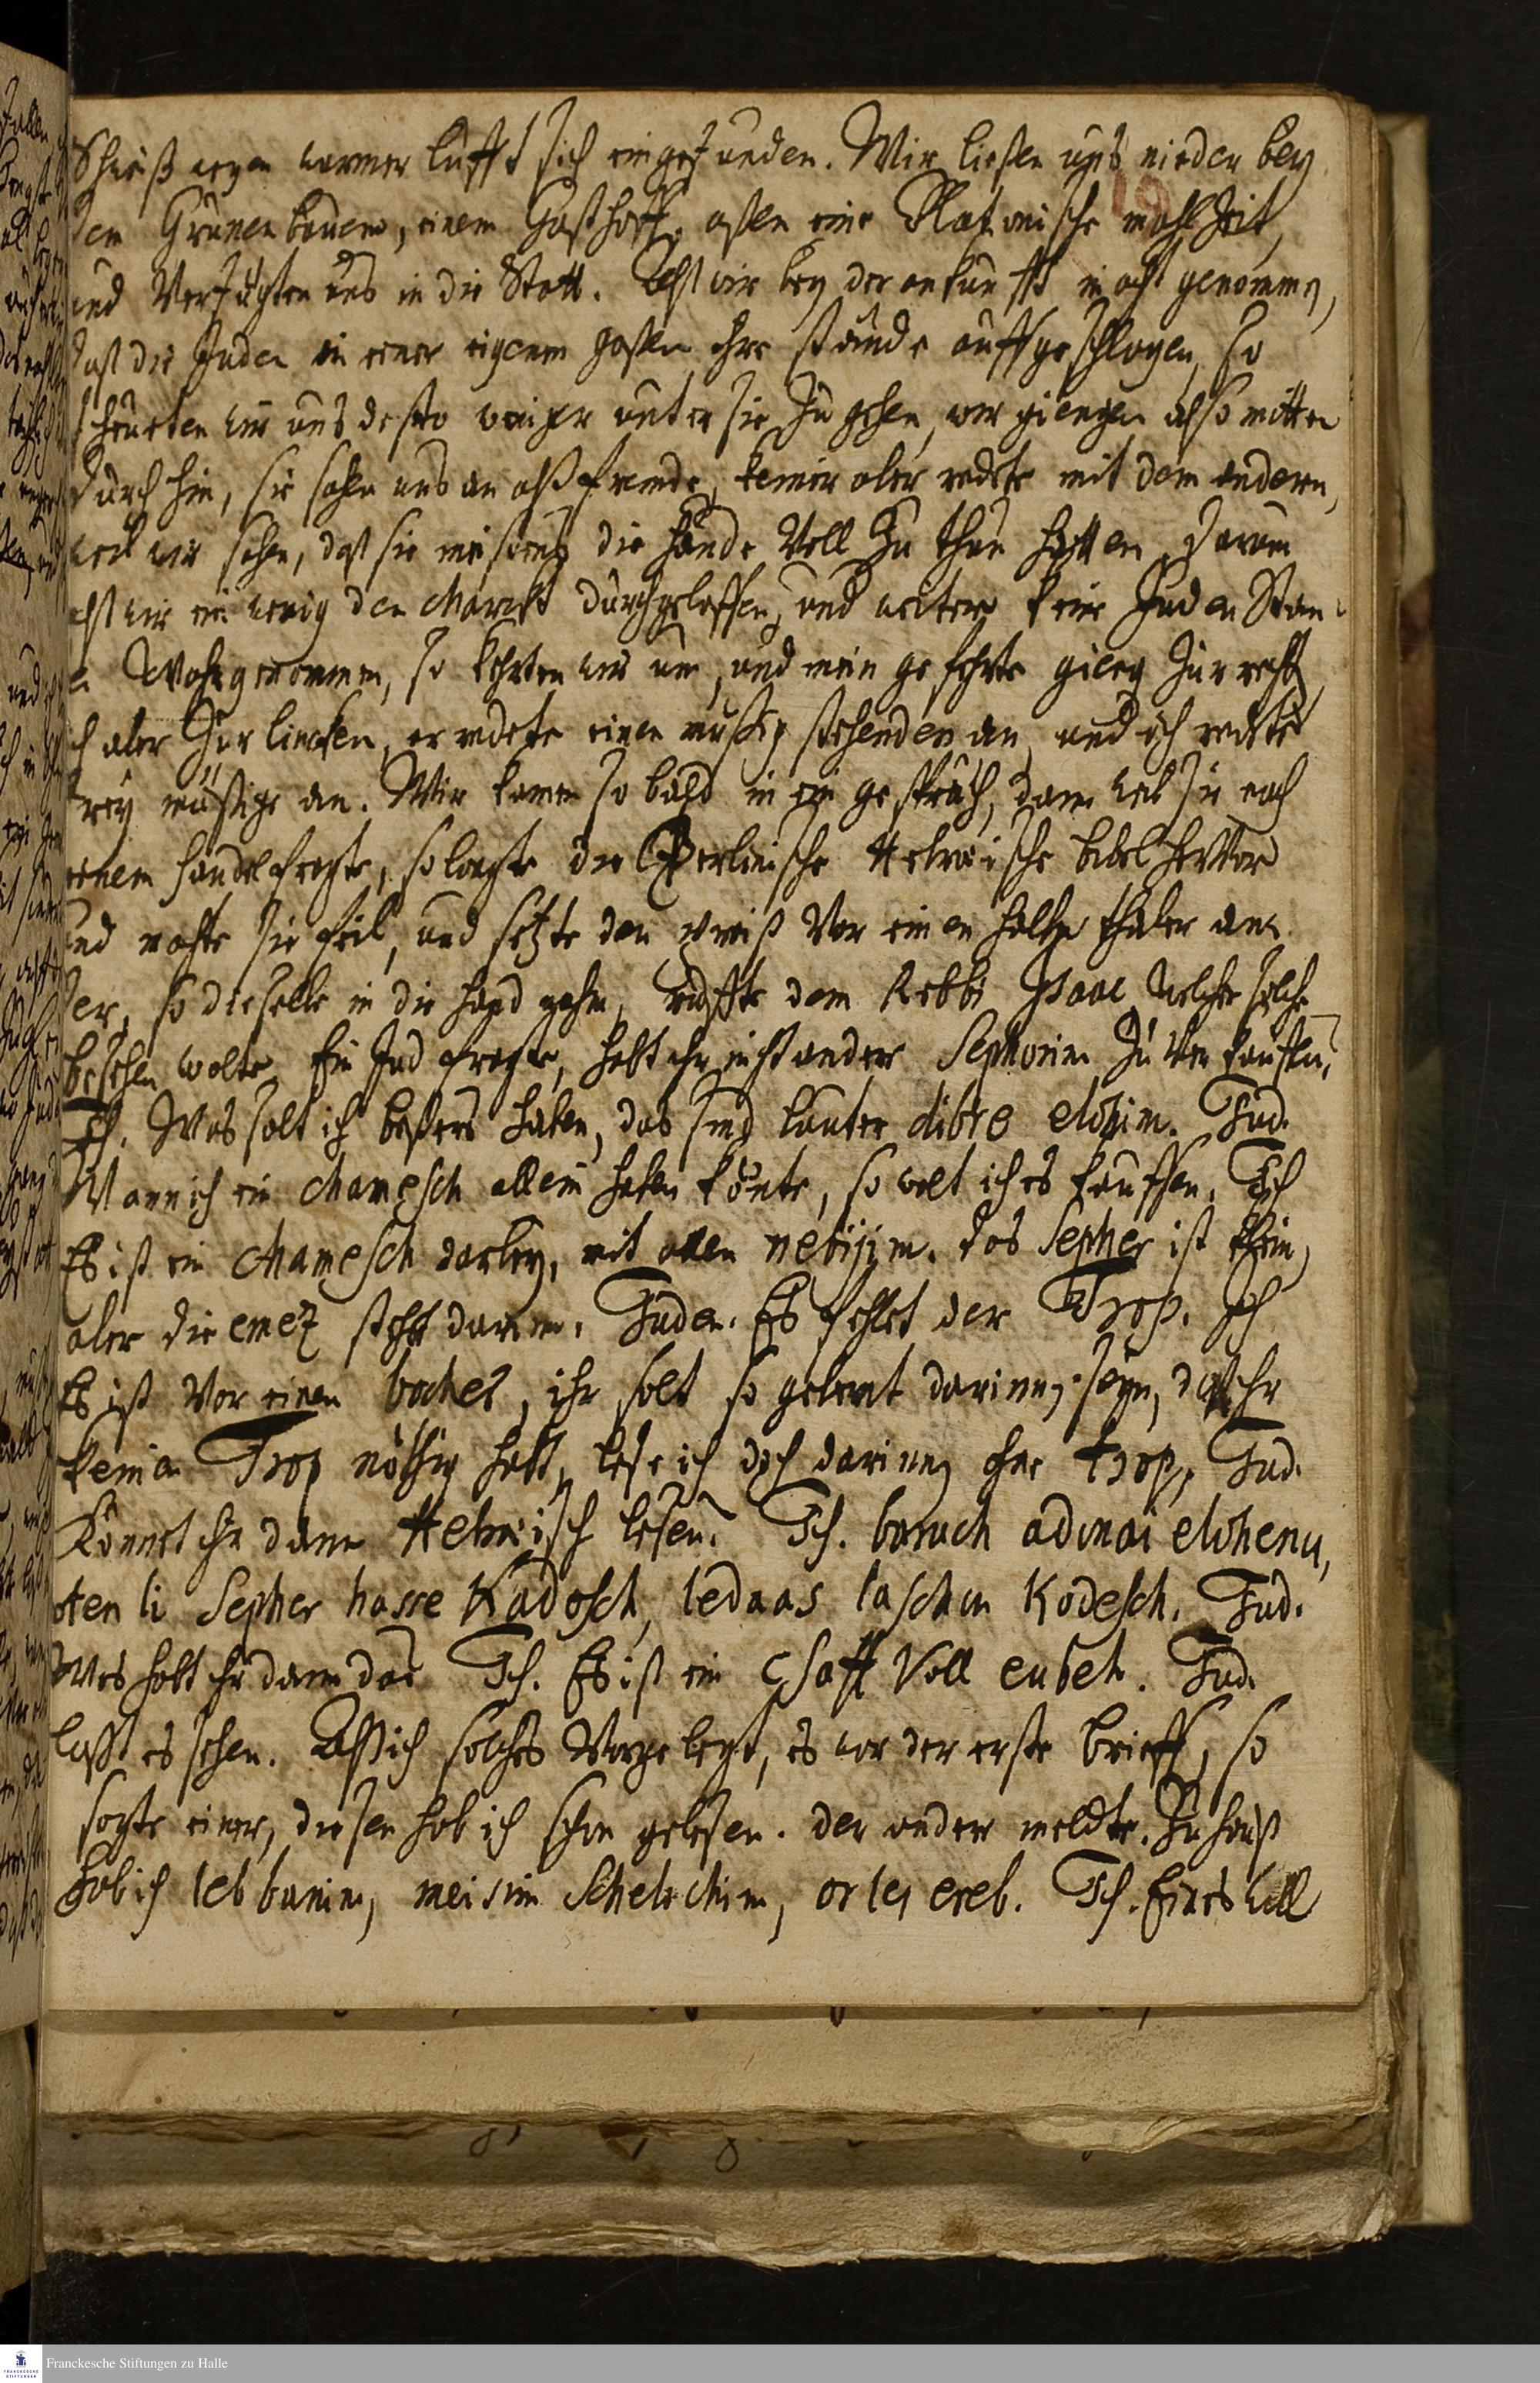 Schweiß wegen warmer Lufft sich eingefunden. Wir ließen uns nieder bey
dem Grünenbaum, einem Gasthoff, aßen eine Platonische mahlzeit,
und Verfügten uns in die Statt. Alß wir bey der ankunfft in acht genommen,
daß die Juden in einer eigenen gaßen ihre stände auffgeschlagen, so
scheueten wir uns desto weniger unter sie zu gehen, wir giengen also mitten
durch hin, sie sahen uns an alß fremde, keiner aber redete mit dem andern,
weil wir sahen, daß sie meistens die hände Voll zu thun hatten. Darum
alß wir ein wenig den Marckt durchgeloffen, und weiter keine Juden Stän-
de Wahrgenommen, so kehrten wir um, und mein geferte gieng zur rechten
ich aber zur lincken, er redete einen müßig stehenden an, und ich redete
drey müßige an. Wir kamen so bald in ein gespräch, dann weil sie nach
einem handel fragte, so langte die Berlinische Hebreische bibel hervor
und machte sie feil, und setzte den preiß Vor einen halben thaler an.
der, so dieselbe in die hand nahm, ruffte dem Rebbi Isaac, welcher solche
besehen wolte. Ein Jud fragte, habt ihr nicht andere Sephorim zu verkauffen?
Ich. Was solt ich beßers haben, das sind lauter dibre elohim. Jud.
Wann ich ein chamesch allein haben könte, so wolt ich es kauffen. Ich
Es ist ein chamesch darbey, mit allen nebijim. das Sepher ist klein,
aber die emez steht darinn. Juden. Es fehlet der Trop. Ich
Es ist vor einen bocher, ihr solt so gelernt darinnen seyn, daß ihr
keinen Trop nöthig habt, lese ich doch darinnen ohne trop. Jud.
Könnet ihr dann Hebreisch lesen? Ich. baruch adonai elohenu,
noten li Sepher hasse Kadosch, ledaas laschon Kodesch. Jud.
Was habt ihr dann da? Ich. Es ist ein Schaff Voll eubeh. Jud.
laßt es sehen. Alß ich solches Vorgelegt, es war der erste brieff, so
sagte einer, diesen hab ich schon gelesen. der ander meldete. zu hauß
hab ich leb banim, meisim Schelochim, or lei ereb. Ich. Eines will
Franckesche Stiftungen zu Halle